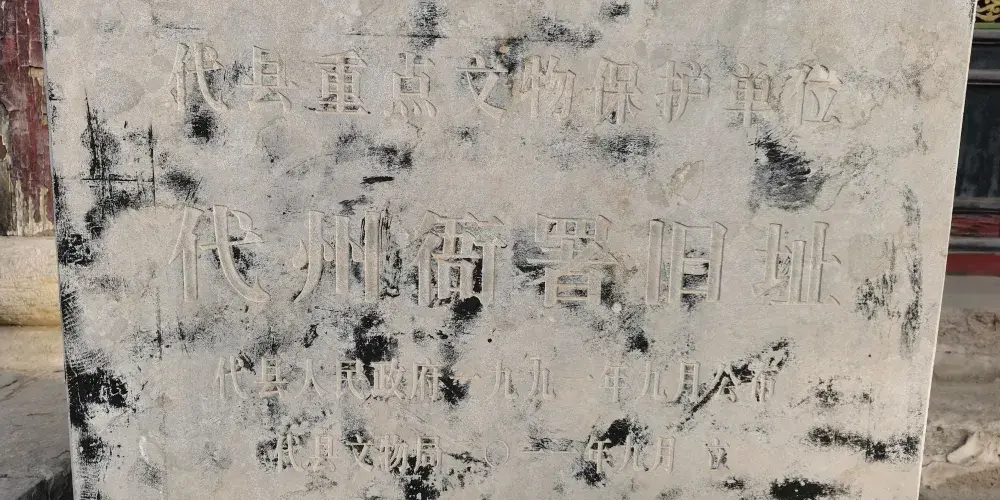 代县重点文物保护单位
代州衙署旧址
代县人民政府一九九一年九月公布
代县文物局二〇一一年九月立